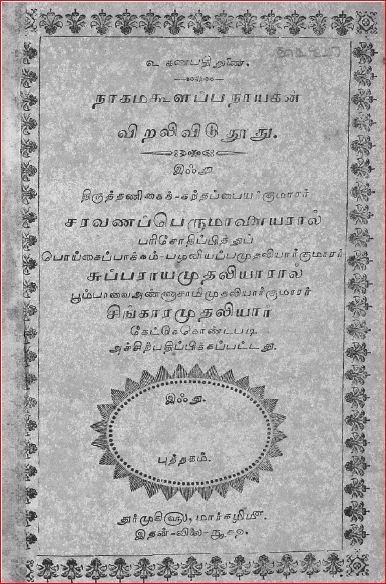 உ கணபதிதுணை.
நாகமகூளப்பநாயகன்
விறலிவிடுதூது.
இஃது
திருத்தணிகைக்-கந்தப்பையர்குமாரர்
சரவணப்பெருமாளையரால்
பரிசோதிப்பித்துப்
பொய்கைப்பாக்கம்-பழனியப்பமுதலியார்குமாரர்
சுப்பராயமுதலியாரால்
பூம்பாவைஅண்ணாசாமிமுதலியார்குமாரர்
சிங்காரமுதலியார்
கேட்டுக்கொண்டபடி
அச்சிற்பதிப்பிக்கப்பட்டது.
இஃது
புத்தகம்.
துர்முகிவரு, மார்கழிமீ.
இதன்-விலை-